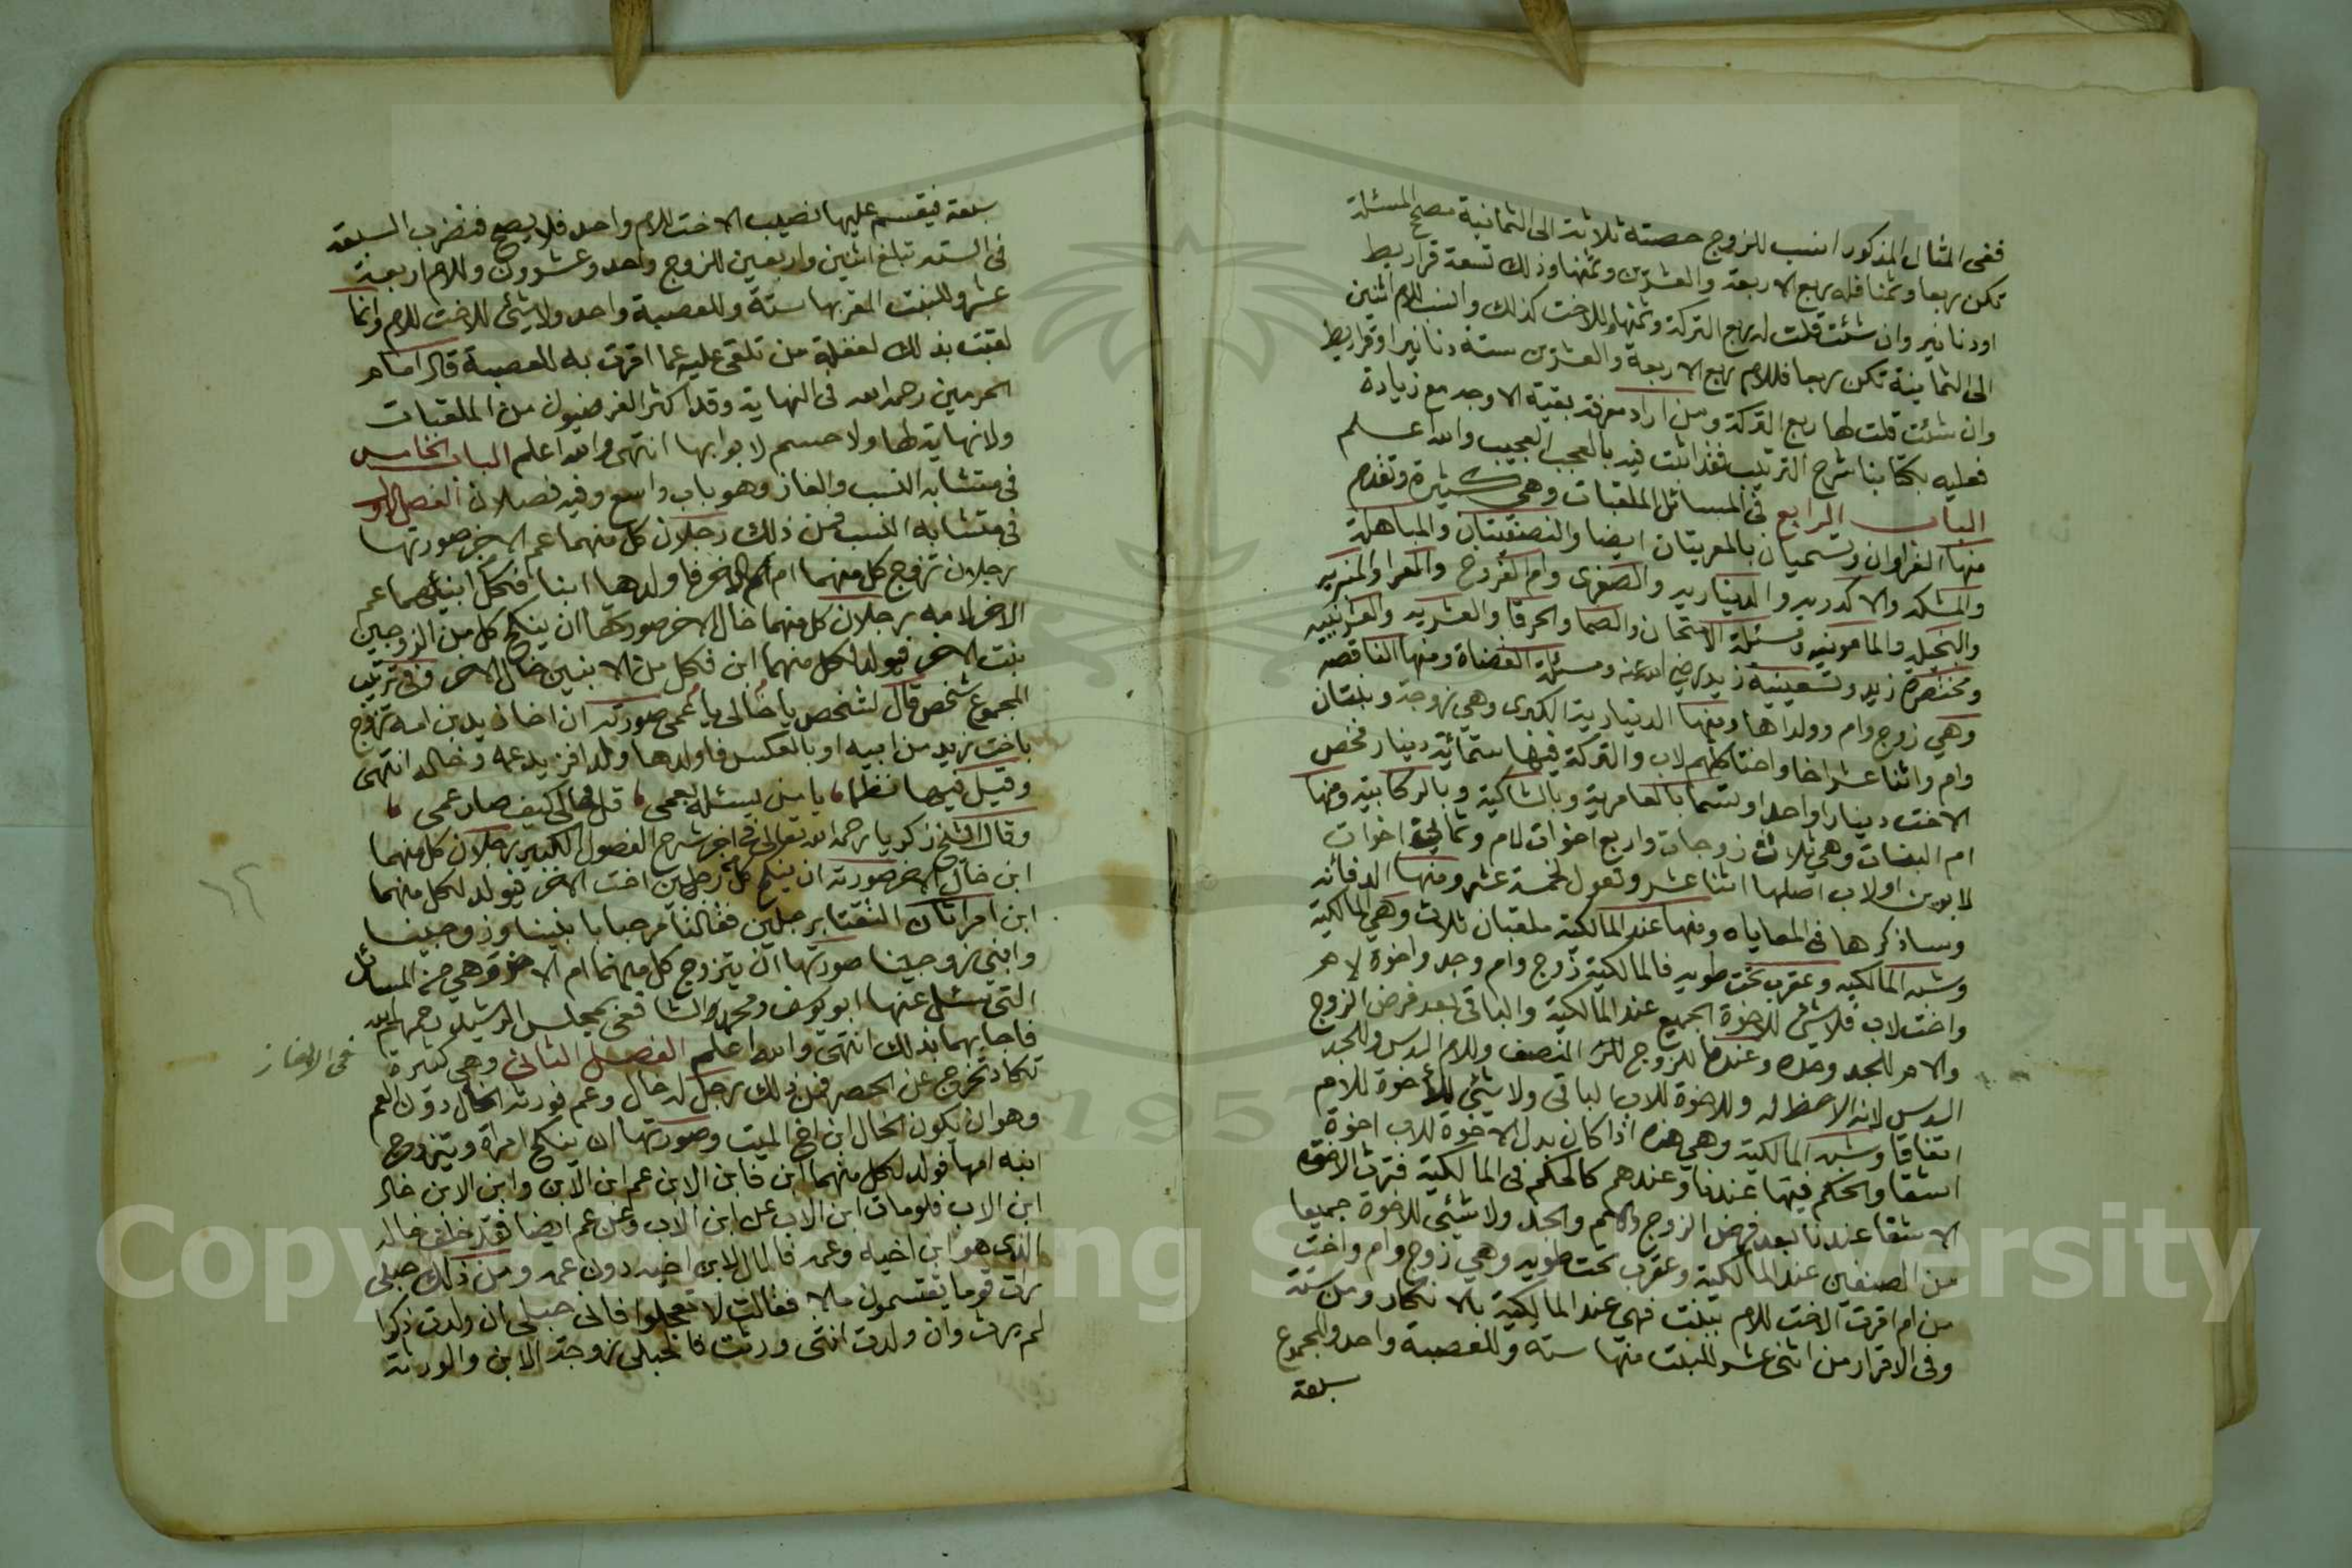 ففي المثال المذكور انسب للزوج حصته ثلاثة الى الثمانية مصح المسئلة
تكن ربعا وثمنا فله ربع الاربعة والعشرين وثمنها وذلك تسعة قراريط
او دنانير وان شئت قلت له ربع التركة وثمنها وللاخت كذلك وانسب للام اثنين
الى الثمانية تكن ربعا فللام ربع الاربعة والعشرين ستة دنانير او قراريط
وان شئت قلت لها ربع التركة ومن اراد معرفة بقية الاوجه مع زيادة
فعليه بكتابنا شرح الترتيب فقد اتيت فيه بالعجب العجيب والله اعلم
الباب الرابع في المسائل الملقبات وهي كثيرة وتقدم
منها الغراوان وتسميان بالعمريتان ايضا والنصفيتان والمباهلة
والمشتركة والاكدرية والدينارية والصغرى وام الفروخ والغرا والمنبرية
والبخيلة والمامونية ومسئلة الامتحان والصما والخرقا والعشرية والعشرينية
ومختصرة زيد وتسعينية زيد رضي الله عنه ومسئلة القضاة ومنها الناقصة
وهي زوج وام وولداها ومنها الدينارية الكبرى وهي زوجة وبنتان
وام واثنا عشر اخا واختا كلهم لاب والتركة فيها ستمائة دينار فخص
الاخت دينارا واحدا وتسما بالعامرية وبالشاكية وبالركابية ومنها
ام البنات وهي ثلاث زوجات واربع اخوات لام وثمانية اخوات
لابوين او لاب اصلها اثنا عشر وتعول لخمسة عشر ومنها الدفانة
وساذكرها في المعاياه ومنها عند المالكية ملقبان ثلاث وهي المالكية
وشبه المالكية وعقرب تحت طوبه فالمالكية زوج وام وجد واخوة لام
واخت لاب فلا شي للاخوة الجميع عند المالكية والباقي بعد فرض الزوج
والام للجد وحده وعندنا للزوج النصف وللام السدس وللجد
السدس لانه الاحظ له وللاخوة للاب الباقي ولا شئ للاخوة للام
اتفاقا وشبه المالكية وهي هذه اذا كان بدل الاخوة للاب اخوة
اشقا والحكم فيها عندنا وعندهم كالحكم في المالكية فترث الاخوة
الاشقا عندنا بعد فرض الزوج والام والجد ولا شئي للاخوة جميعا
من الصنفين عند المالكية وعقرب تحت طوبه وهي زوج وام واخت
من ام اقرت الاخت للام ببنت فهي عند المالكية بالانكار من ستة
وفي الاقرار من اثني عشر للبنت منها ستة وللعصبة واحد والمجموع
سبعة
سبعة فيقسم عليها نصيب الاخت للام واحد فلا يصح فنضرب السبعة
في الستة تبلغ اثنين واربعين للزوج واحد وعشرون وللام اربعة
عشر وللبنت المقر بها ستة وللعصبة واحد ولا شئ للاخت للام وانما
لقبت بذلك لغفلة من تلقى عليه عما اقرت به للعصبة قال امام
الحرمين رحمه الله في النهاية وقد اكثر الفرضيون من الملقبات
ولا نهاية لها ولا حسم لابوابها انتهى والله اعلم الباب الخامس
في متشابه النسب والغاز وهو باب واسع وفيه فصلان الفصل الاول
في متشابه النسب فمن ذلك رجلان كل منهما عم الاخر صورتها
رجلان تزوج كل منهما ام الاخر فاولدها ابنا فكل ابنيهما عم
الاخر لامه رجلان كل منهما خال الاخر صورتها ان ينكح كل من الزوجين
بنت الاخر فيولد لكل منهما ابن فكل من الابنين خال الاخر وفي ترتيب
المجموع شخص قال لشخص يا خالي يا عمي صورته ان اخا زيد من امه تزوج
باخت زيد من ابيه او بالعكس فاولدها ولدا فزيد عمه وخاله انتهى
وقيل فيها نظما يا من يسئله لعمي قل لخالي كيف صار عمي
وقال الشيخ زكريا رحمه الله تعالى في اخر شرح الفصول الكبير رجلان كل منهما
ابن خال الاخر صورته ان ينكح كل من رجلين اخت الاخر فيولد لكل منهما
ابن امراتان التقتا برجلين فقالتا مرحبا بابنينا وزوجينا
وابني زوجينا صورتها ان يتزوج كل منهما ام الاخر وهي من المسائل
التي سئل عنها ابو يوسف ومحمد والشافعي بمجلس الرشيد رحمهم الله
فاجابهما بذلك انتهى والله اعلم الفصل الثاني وهي كثيرة
في الالغاز
تكاد تخرج عن الحصر فمن ذلك رجل له خال وعم فورثه الخال دون العم
وهو ان يكون الخال ابن اخ الميت وصورتها ان ينكح امراة ويتزوج
ابنه امها فولد لكل منهما ابن فابن الابن عم ابن الابن وابن الابن خال
ابن الاب فلو مات ابن الاب عن ابن الاب وعن عم ايضا فقد خلف خاله
الذي هو ابن اخيه وعمه فالمال لابن اخيه دون عمه ومن ذلك حبلى
رات قوما يقتسمون مالا فقالت لا تعجلوا فاني حبلى ان ولدت ذكرا
لم يرث وان ولدت انثى ورثت فالحبلى زوجة الابن والورثة